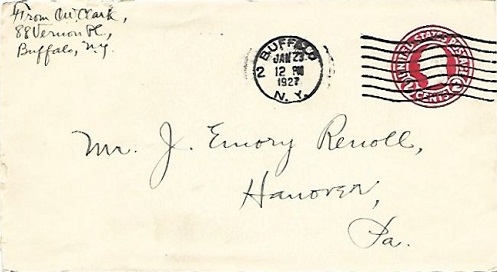 From Ori Clark,
88 Vernon Pl.,
Buffalo, N.Y.
BUFFALO
2
JAN 23
12 PM
1927
N. Y.
UNITED STATES POSTAGE
2 CENTS 2
Mr. J. Emory Renoll,
Hanover,
Pa.